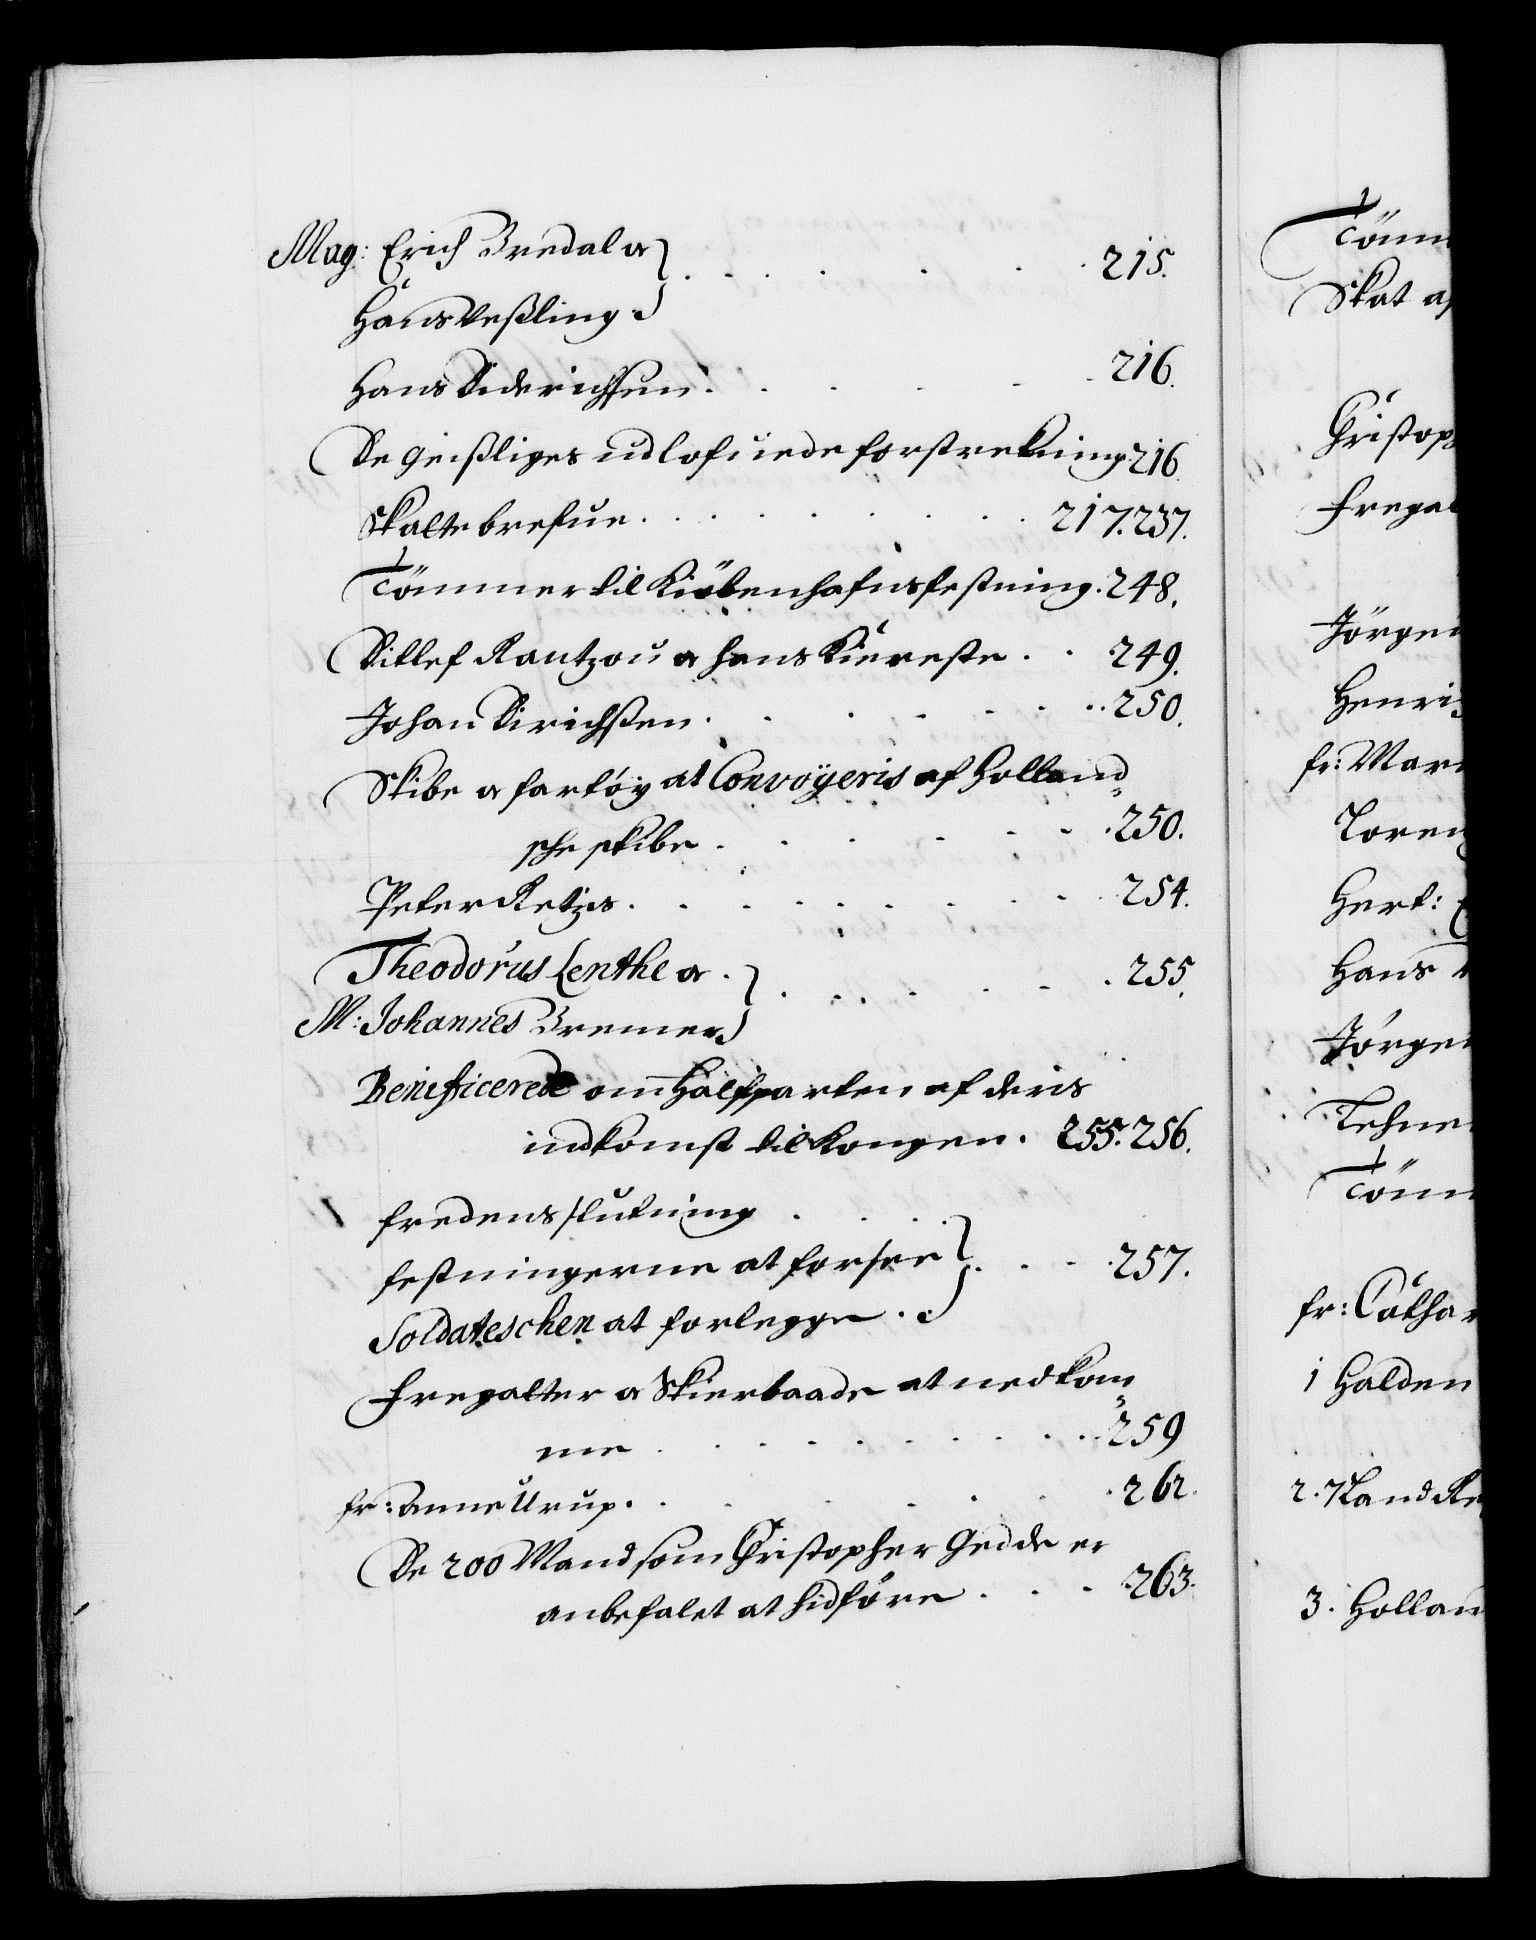 Mag: Erich Bredal oc
Hans Veßling } . . . . . . 215.
Hans Diderichsen . . . . . 216.
De Geistliges udlofuede forstrekning 216.
Skatte brefue . . . . . . 217. 237.
Tömmer til Kiöbenhafns festning. 248.
Ditlef Rantzou oc hans Kiereste . . 249.
Johan Dirichsen . . . . . . 250.
Skibe oc fartöy at Convoÿeris af Holland
sche skibe . . . . . . 250.
Peter Retz . . . . . . 254.
Theodorus Lenthe oc
M: Johannes Bremer } . . . . . . 255.
Benificerede om Halfparten af deris
indkomst til Kongen. 255. 256.
fredens slutning . . . .
festningerne at forsee } . . . 257.
Soldateschen at forlegge
Fregatter oc Skierbaade at nedkom
me . . . . . . . 259
fr: Anne Urup. . . . . . . 262.
De 200 Mand som Christopher Gedde er
anbefalet at hidföre . . . 263.
Tömm
Skat af
Christoph
Fregat
Jörgen
Henri
fr: Mar
Loren
Hert:
Hans
Jörgen
Tömm
fr: Cathar
1 Halden
3. Hollan